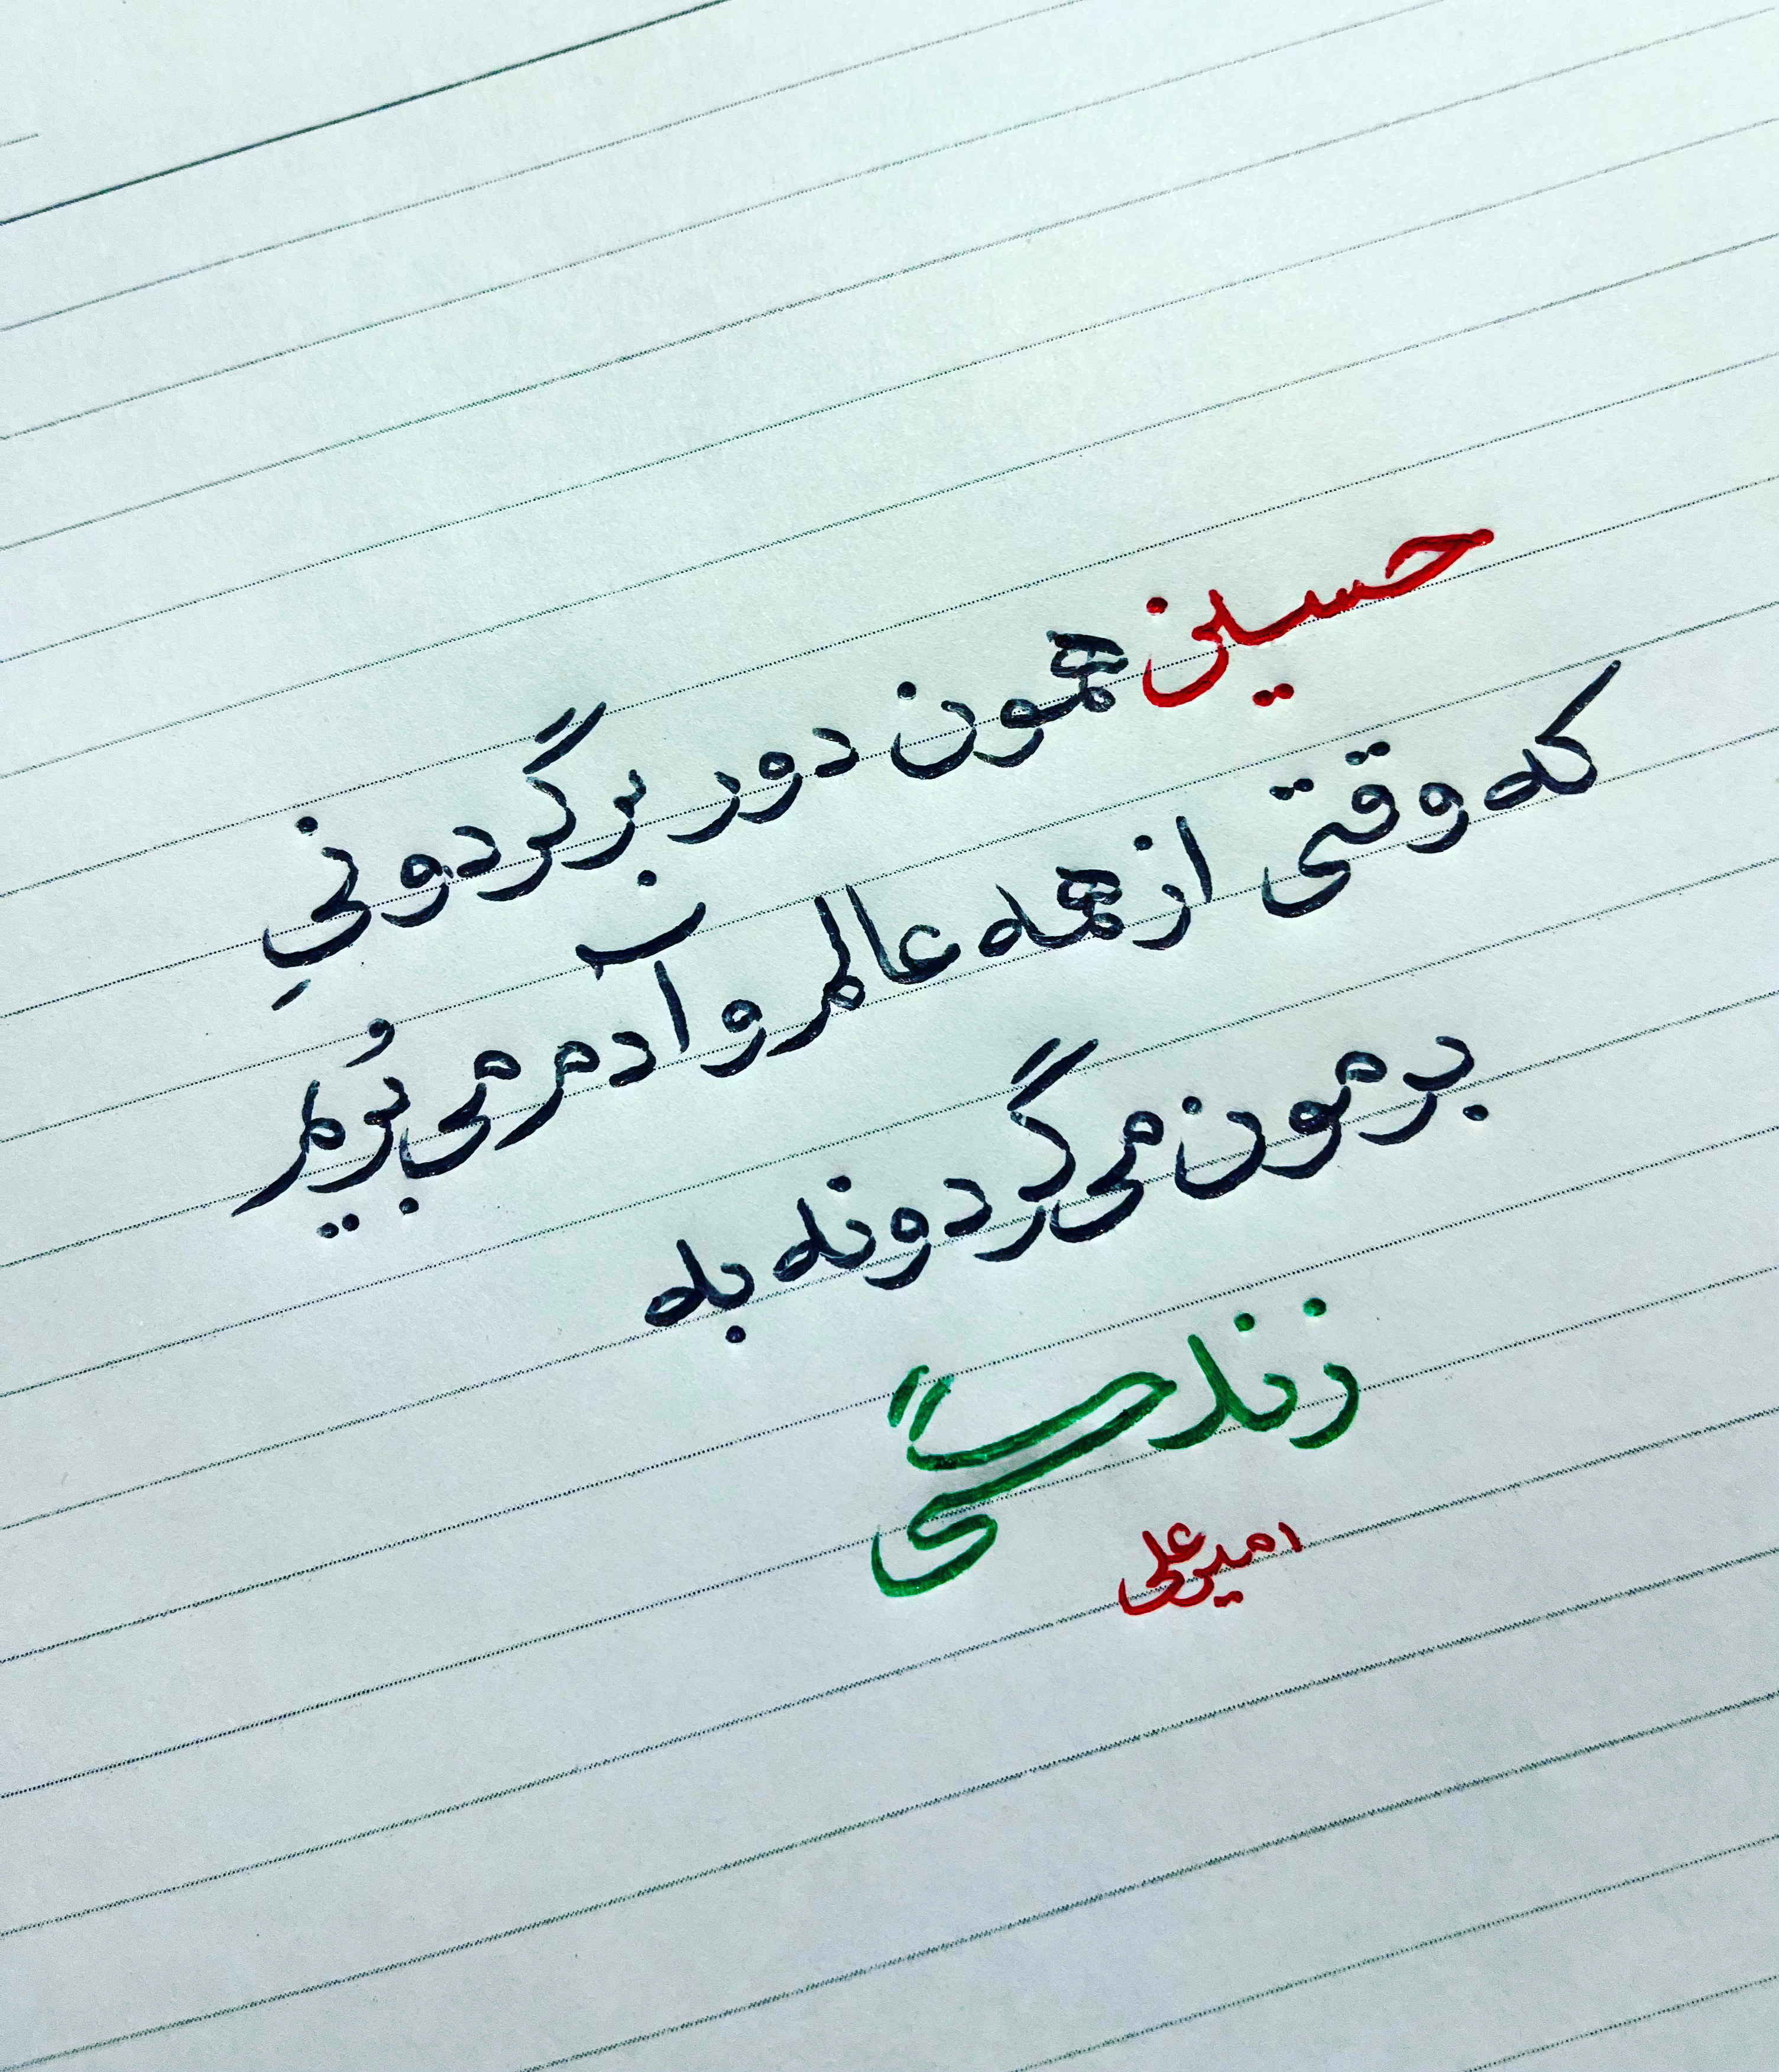 حسین همون دور برگردونیِ
که وقتی از همه عالم و آدم می بُریم
برمون می گردونه به
زندگی
امیرعلی